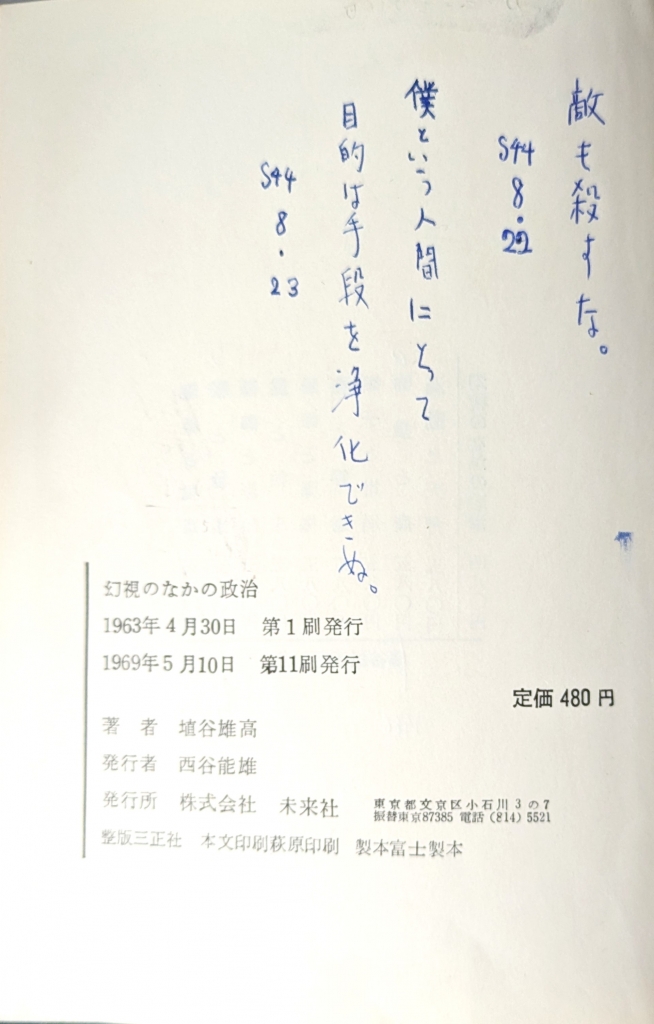 敵も殺すな。
S44
8.
22
僕という人間にとって
目的は手段を浄化できぬ。
S44
8
.
23
幻視のなかの政治
1963年4月30日　第1刷発行
1969年5月10日　第11刷発行
定価 480 円
著　者　埴谷雄高
発行者　西谷能雄
発行所　株式会社　未来社　東京都文京区小石川3の7
振替東京87385 電話(814)5521
整版三正社　本文印刷萩原印刷　製本富士製本